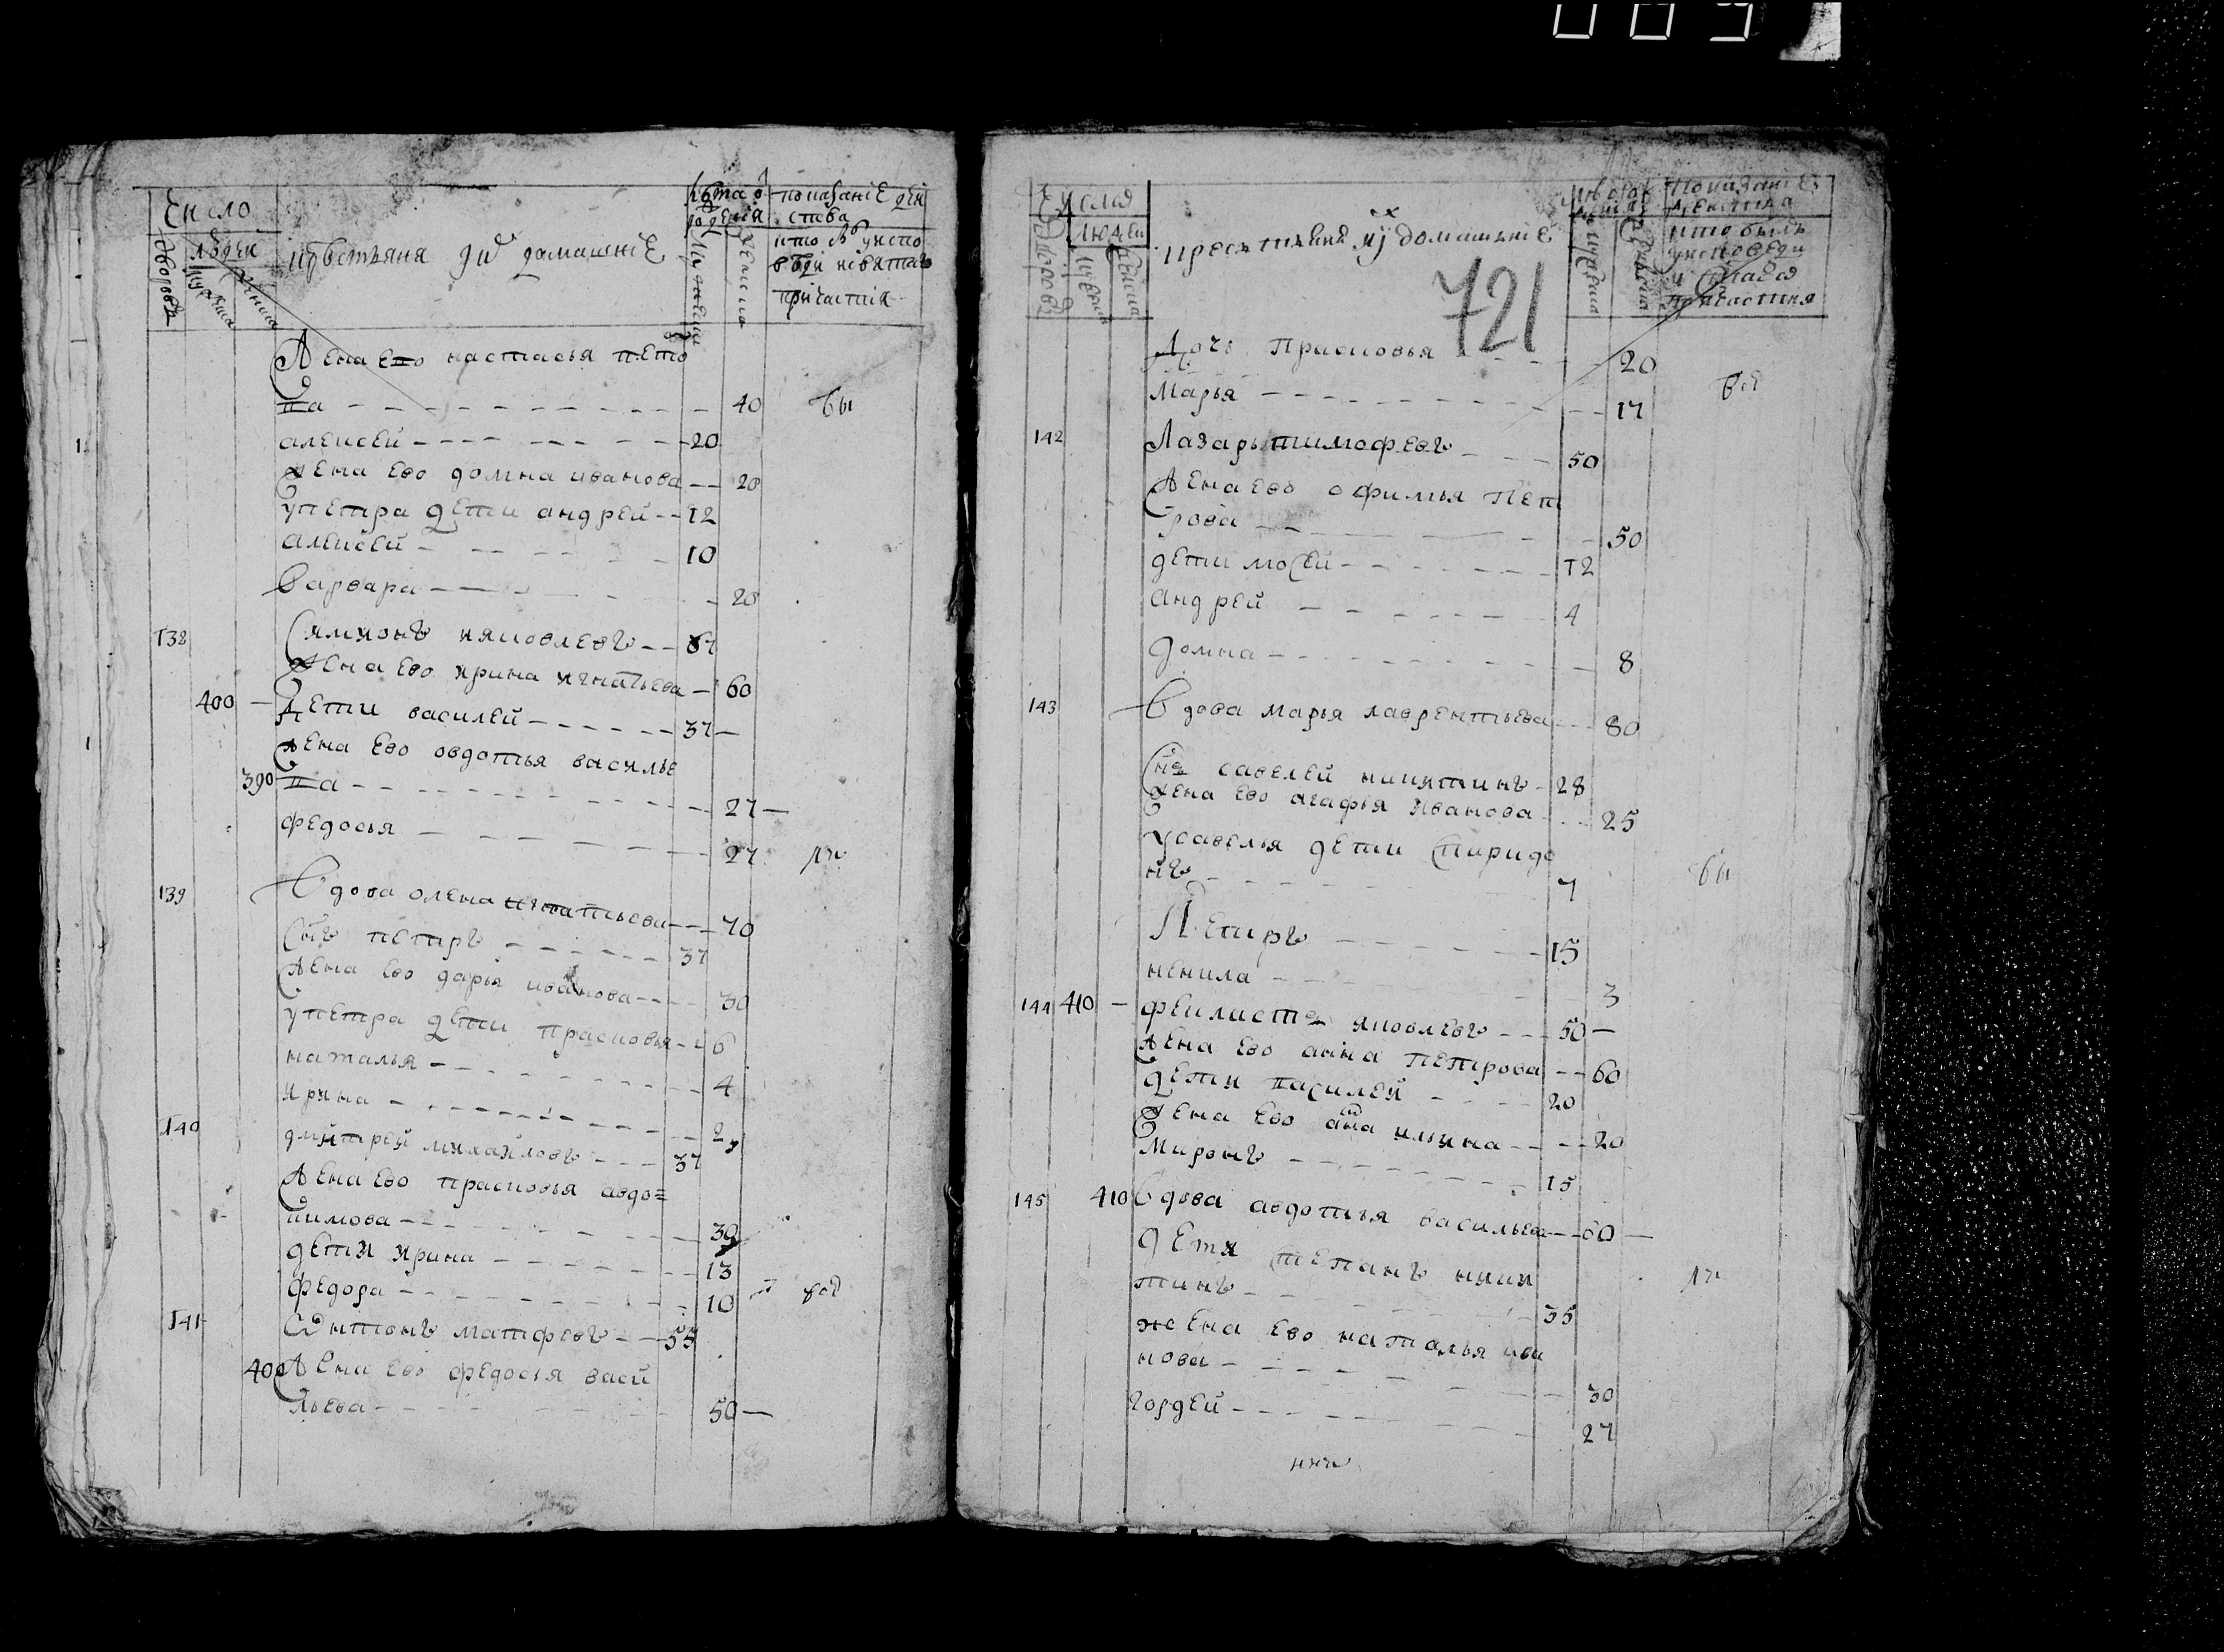 Число
людей
дворовъ
мужеска
женска
крестьяня и домашние
лета
рождения
мужеска
женска
показание действа
кто был у испо
веди и святаго
причастия
Жена ево настасья пето
ва 40 бы
алексей 20
жена ево домна иванова 20
у петра дети андрей 12
алексей 10
Варвара 20
138 Симионъ яковлевъ 67
жена ево ирина игнатьева 60
400 Дети василей 37
жена ево овдотья василье
390 ва 27
федосья 27
139 Вдова олена игнатьева 70
Снъ петръ 37
жена ево дарья иванова 30
у петра дети прасковья 6
наталья 4
ирина 2
140 дмитрей михайловъ 37
жена ево прасковья авдо=
кимова 30
дети ирина 13
федора 10
141 Онтонъ матфеевъ 55
400 жена ево федосья васи
льева 50
721
Числа
дворовъ
людей
мужеска
женска
крестьяня и их домашьние
мужеска
женска
показание
кто былъ
у исповеди
и святаго
причастия
Дочь прасковья 20
марья 17
142 Лазарь тимофеевъ 50
жена ево офимья Пет
рова 50
дети мосей 12
андрей 4
домна 8
143 Вдова марья лаврентьева 80
Снъ савелей никитинъ 28
жена ево агафья иванова 25
у савелья дети спиридо
нъ 7 бы
Петръ 15
ненила 3
144 410 феклистъ яковлевъ 50
жена ево анна петрова 60
дети василей 20
жена ево анна ильина 20
Миронъ 15
145 410 Вдова авдотья васильева 60
дети степанъ ники
тинъ 35
жена ево наталья ива
нова 30
гордей 27